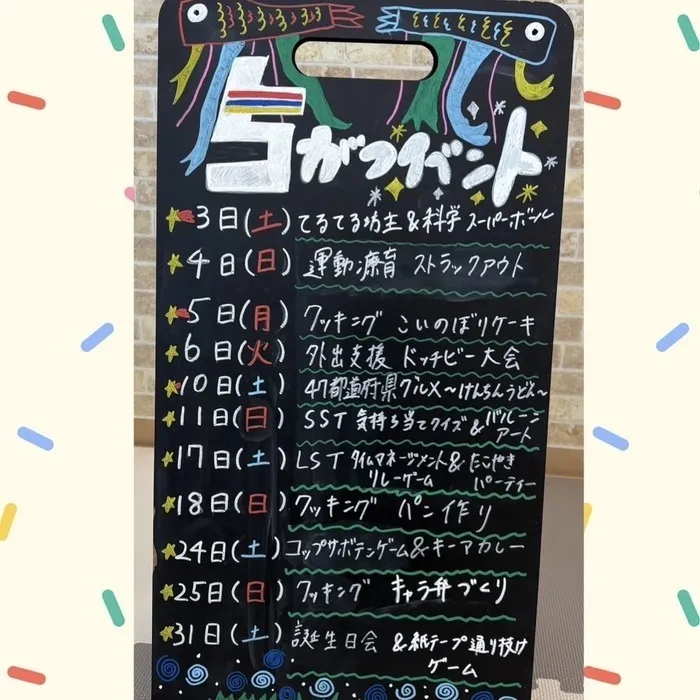 5がつイベント
3日(土) てるてる坊主&科学 スーパーボール
4日(日) 運動療育 ストラックアウト
5日(月) クッキング こいのぼりケーキ
6日(火) 外出支援 ドッチビー大会
10日(土) 47都道府県グルメ～けんちんうどん～
11日(日) SST 気持ち当てクイズ&バルーン
アート
17日(土) LST タイムマネージメント&たこやき
リレーゲーム パーティー
18日(日) クッキング パン作り
24日(土) コップサボテンゲーム&キーマカレー
25日(日) クッキング キャラ弁づくり
31日(土) 誕生日会 &紙テープ通り抜け
ゲーム